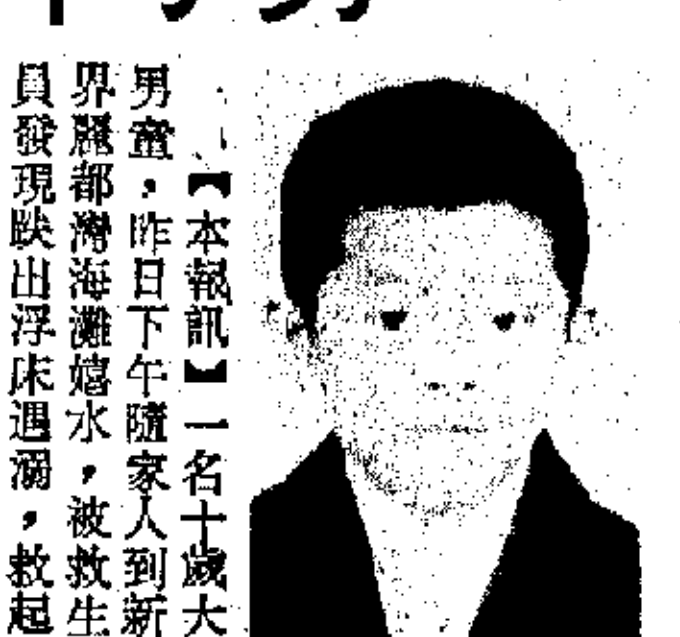 【本報訊】一名十歲大
男童，昨日下午隨家人到新
界麗都灣海灘嬉水，被救生
員發現趺出浮床遇溺，救起